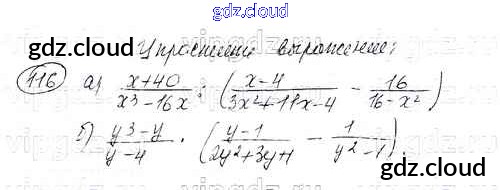 gdz.cloud
gdz.cloud Упростите выражение: gdz.cloud
116 а) x+40 / x³-16x : ( x-4 / 3x²+11x-4 - 16 / 16-x² )
б) y³-y / y-4 · ( y-1 / 2y²+3y+1 - 1 / y²-1 )
gdz.cloud
gdz.cloud